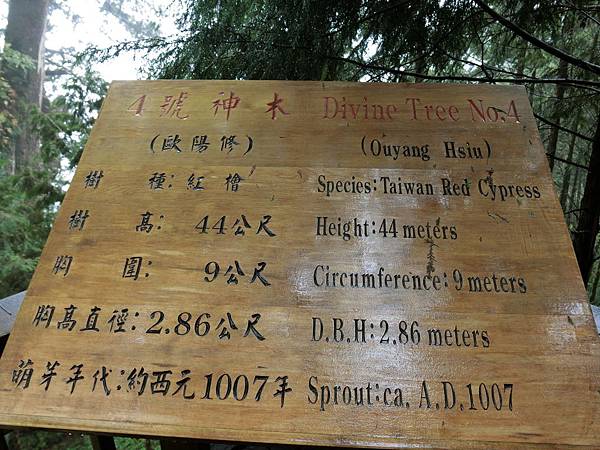 4號神木 Divine Tree No.4
(歐陽修) (Ouyang Hsiu)
樹種:紅檜 Species:Taiwan Red Cypress
樹高: 44公尺 Height:44 meters
胸圍: 9公尺 Circumference:9 meters
胸高直徑:2.86公尺 D.B.H:2.86 meters
萌芽年代:約西元1007年 Sprout:ca. A.D.1007